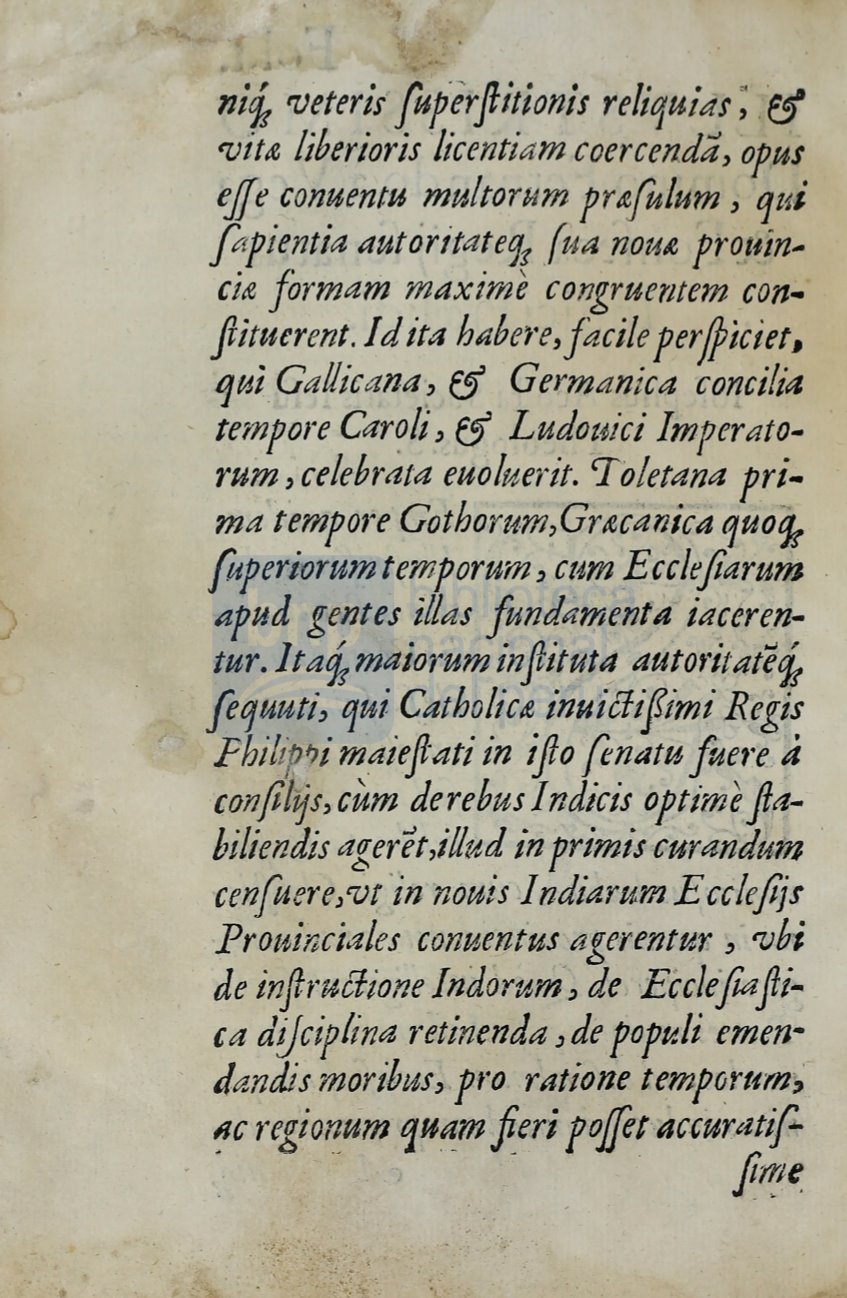 niq́ꝫ veteris ſuperſtitionis reliquias, &
vitæ liberioris licentiam coercendā, opus
eſſe conuentu multorum præſulum, qui
ſapientia autoritateqꝫ ſua nouæ prouin-
ciæ formam maximè congruentem con-
ſtituerent. Id ita habere, facile perſpiciet,
qui Gallicana, & Germanica concilia
tempore Caroli, & Ludouici Imperato-
rum, celebrata euoluerit. Toletana pri-
ma tempore Gothorum, Græcanica quoqꝫ
ſuperiorum temporum, cum Eccleſiarum
apud gentes illas fundamenta iaceren-
tur. Itaq́ꝫ maiorum inſtituta autoritatēq́ꝫ
ſequuti, qui Catholicæ inuictißimi Regis
Philippi maieſtati in iſto ſenatu fuere à
conſilijs, cùm de rebus Indicis optimè ſta-
biliendis agerēt, illud in primis curandum
cenſuere, vt in nouis Indiarum Eccleſijs
Prouinciales conuentus agerentur, vbi
de inſtructione Indorum, de Eccleſiaſti-
ca diſciplina retinenda, de populi emen-
dandis moribus, pro ratione temporum,
ac regionum quam fieri poſſet accuratiſ-
ſime